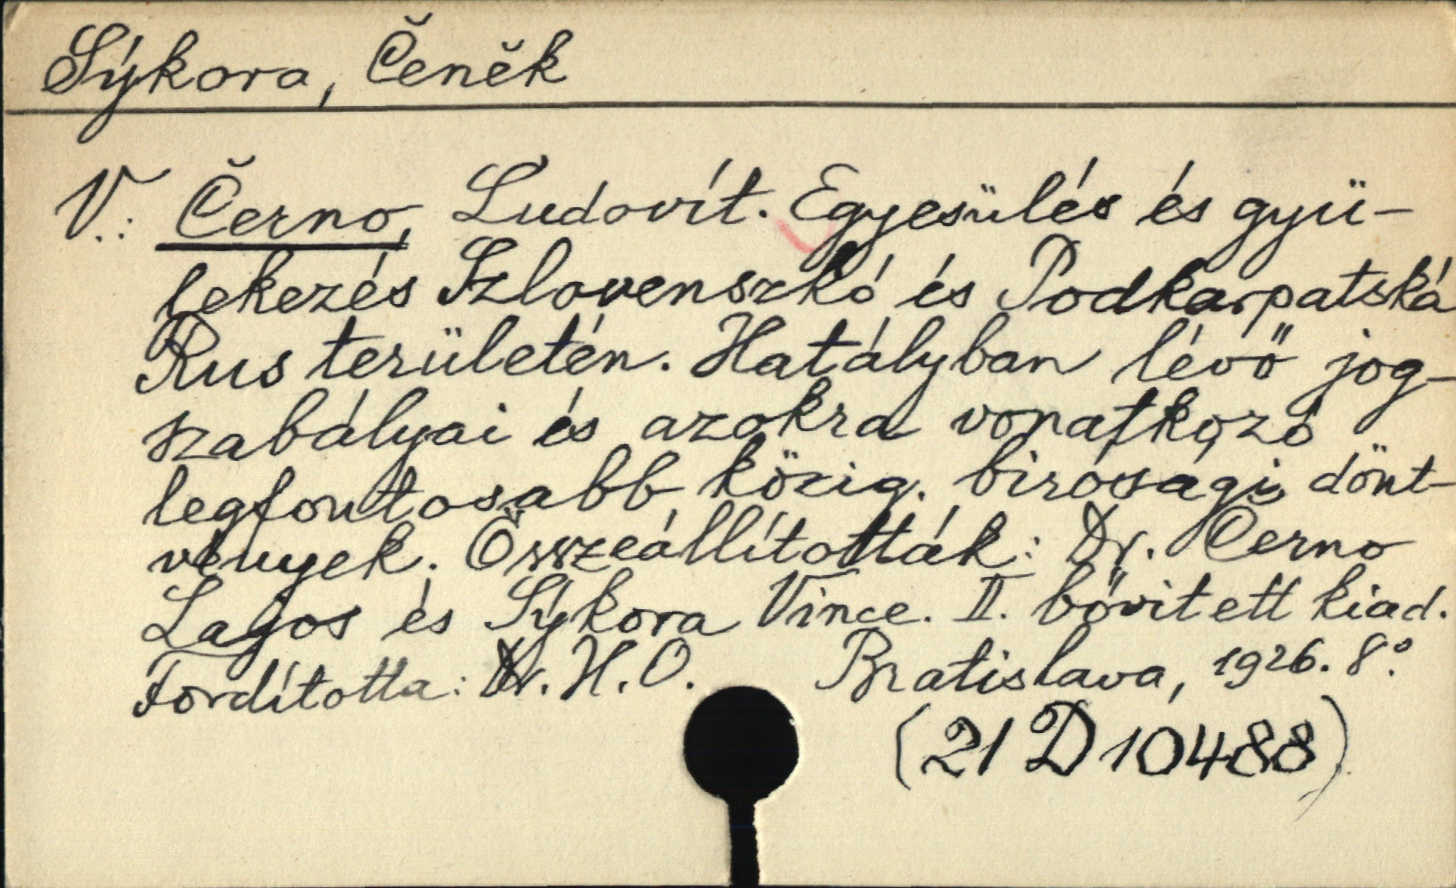 Sýkora, Čeněk
V.: Černo, Ludovít. Egyesülés és gyü-
lekezés Szlovenszkó és Podkarpatská
Rus területén. Hatályban lévő jog-
szabályai és azokra vonatkozó
legfontosabb közig. birósági dönt-
vények. Összeállították: Dr. Černo
Lajos és Sýkora Vince. II. bővitett kiad.
Fordította: Dr. H. O. Bratislava, 1926. 8°.
(21 D 10488)